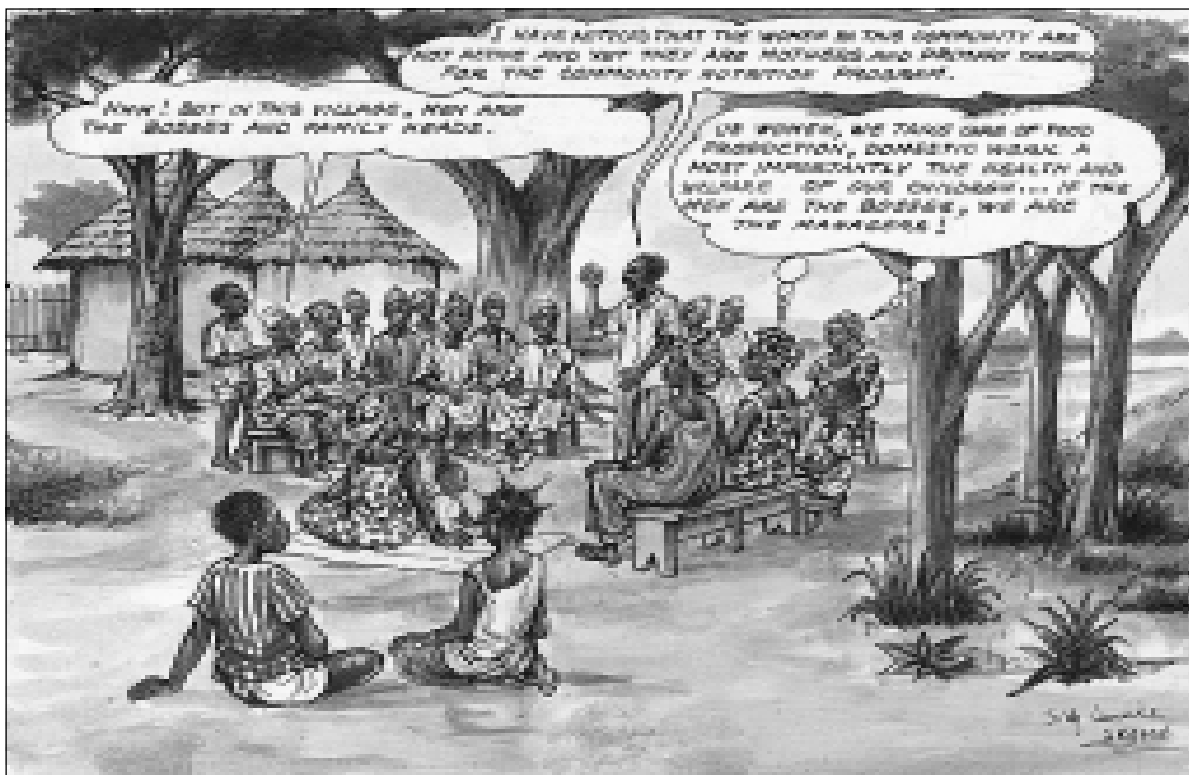 I HAVE NOTICED THAT THE WOMEN IN THIS COMMUNITY ARE
NOT ACTIVE AND YET THEY ARE MOTHERS AND PRIMARY
FOR THE COMMUNITY NUTRITION PROGRAM.
HUM! BUT IN THIS VILLAGE, MEN ARE
THE BOSSES AND FAMILY HEADS.
US WOMEN, WE TAKE CARE OF FOOD
PRODUCTION, DOMESTIC WORK. &
MOST IMPORTANTLY THE HEALTH AND
WELFARE OF OUR CHILDREN... IF THE
MEN ARE THE BOSSES, WE ARE
THE MANAGERS!